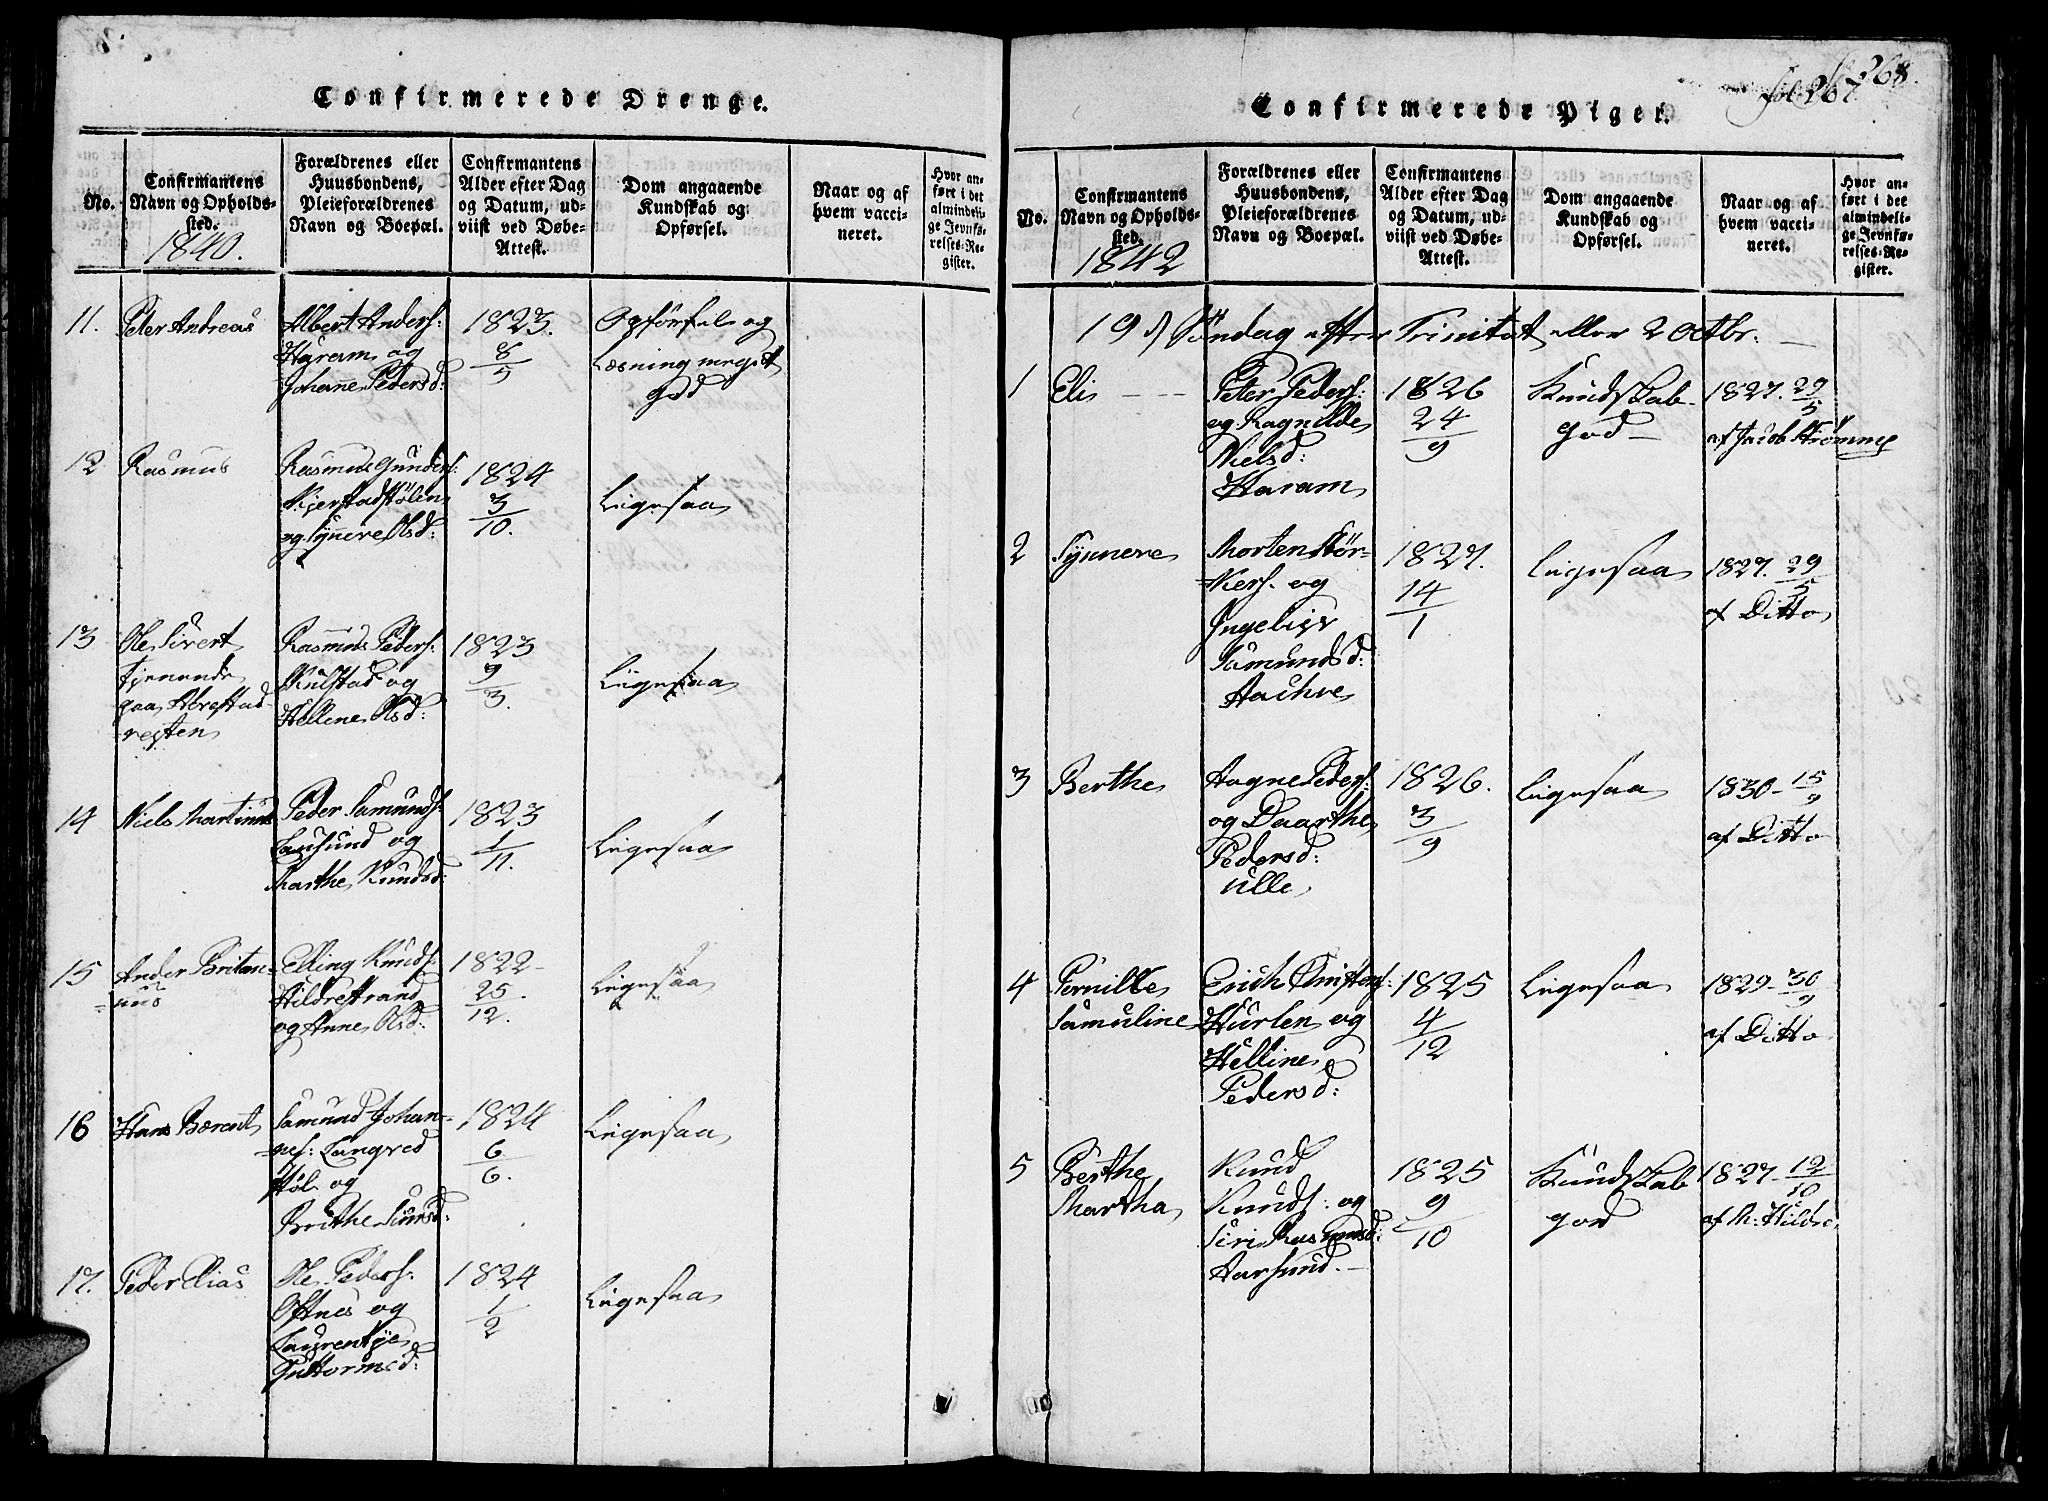 Confirmerede Drenge.
No.
Confirmantens
Navn og Opholds-
sted.
1840.
Forældrenes eller
Huusbondens,
Pleieforældrenes
Navn og Boepæl.
Confirmantens
Alder efter Dag
og Datum, ud-
viist ved Døbe-
Attest.
Dom angaaende
Kundskab og
Opførsel.
Naar og af
hvem vacci-
neret.
Hvor an-
ført i det
almindeli-
ge Jevnfø-
relses-Re-
gister.
11. Peter Andreas
Albert Anders:
Haram og
Johanne Pedersd:
1823.
8/5
Opførsel og
Læsning meget
god
12 Rasmus
Rasmus Gunders:
Kjerstadstølen
og Synneve Olsd:
1824
3/10.
Ligesaa
13 Ole Sivert
tjenende
paa
Rasmus Peders:
og
Hellene Olsd:
1823
9/3.
Ligesaa
14 Niels Martinus
Peder Samunds:
Lausund og
Marthe Knudsd:
1823
1/11.
Ligesaa
15 Ander Britan-
=nus
Elling Knuds:
Hildrestrand
og Anne Olsd:
1822-
25/12.
Ligesaa
16 Hans Bærent
Samund Johan-
=nes: Langved
støl og
Brithe Siursd:
1824
6/6.
Ligesaa
17. Peder Elias
Ole Peders:
Oftnes og
Laurentje
Guttormsd:
1824
1/2
Ligesaa
fol 267
268.
Confirmerede Piger.
No.
Confirmantens
Navn og Opholds-
sted.
1842
Forældrenes eller
Huusbondens,
Pleieforældrenes
Navn og Boepæl.
Confirmantens
Alder efter Dag
og Datum, ud-
viist ved Døbe-
Attest.
Dom angaaende
Kundskab og
Opførsel.
Naar og af
hvem vacci-
neret.
Hvor an-
ført i det
almindeli-
ge Jevnfø-
relses-Re-
gister.
19d Søndag efter Trinitat eller 2 Octbr. —
1 Eli — —
Peter Peders:
og Ragnilde
Nielsd:
Haram
1826
24/9
Kundskab
god —
1827. 29/5
af Jacob Strømmen
2 Synneve
Morten Stør-
=kers. og
Ingeborg
Samundsd:
Aachre
1827.
14/1
Ligesaa
1827. 29/5
af Ditto
3 Berthe
Aagne Peders:
og Daarthe
Pedersd:
Ulle
1826.
3/9
Ligesaa
1830 - 15/9
af Ditto
4 Pernille
Samuline
Erich Christens:
Hurlen og
Helline
Pedersd:
1825
4/12
Ligesaa
1829 - 30/9
af Ditto
5 Berthe
Martha
Knud
Knuds: og
Siri Rasmusd:
Aarsund. —
1825
9/10
Kundskab
god
1827 - 12/10
af M: Hildre